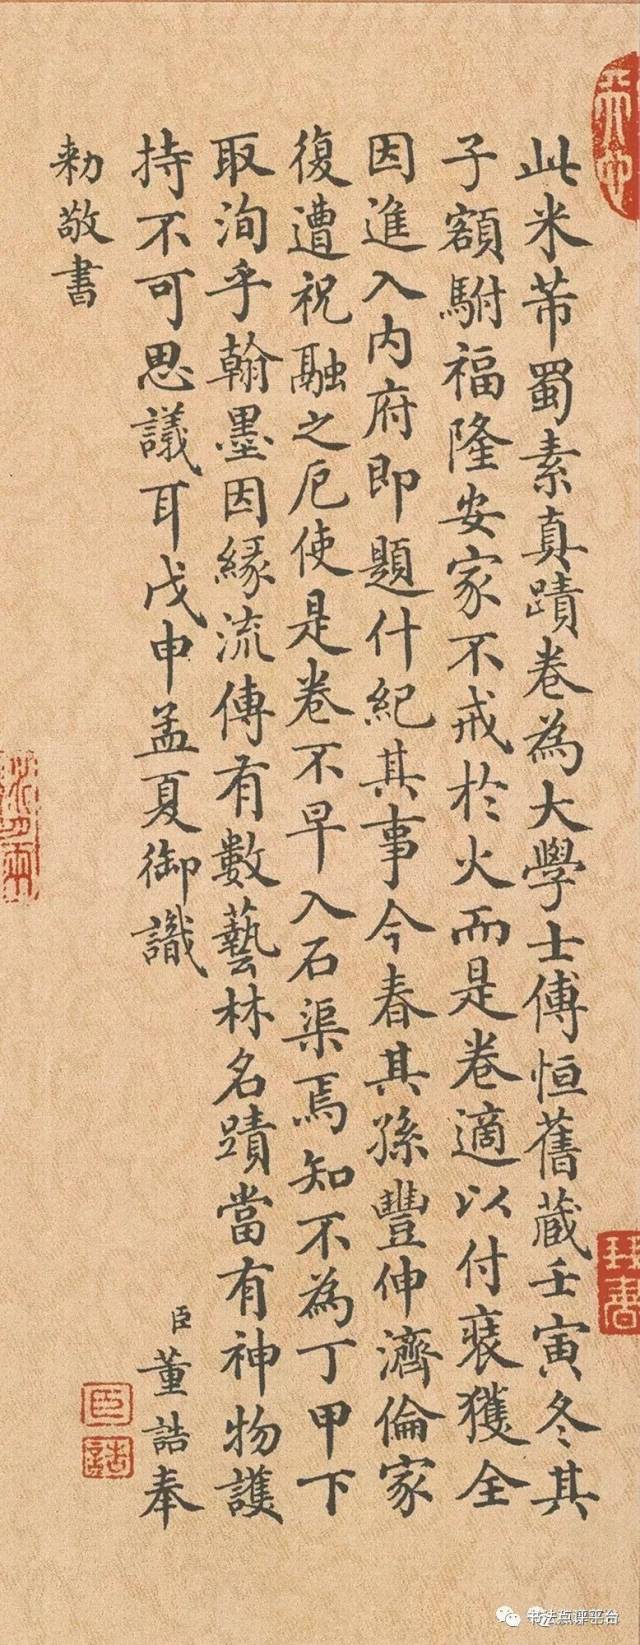 此米芾蜀素真蹟卷為大學士傅恒舊蔵壬寅冬其
子額駙福隆安家不戒於火而是卷適以付裝獲全
因進入內府即題什紀其事今春其孫豐伸濟倫家
復遭祝融之厄使是卷不早入石渠焉知不為丁甲下
取洵乎翰墨因緣流傳有數藝林名蹟當有神物護
持不可思議耳戊申孟夏御識
臣董誥奉
勅敬書
臣
誥
书法点评平台